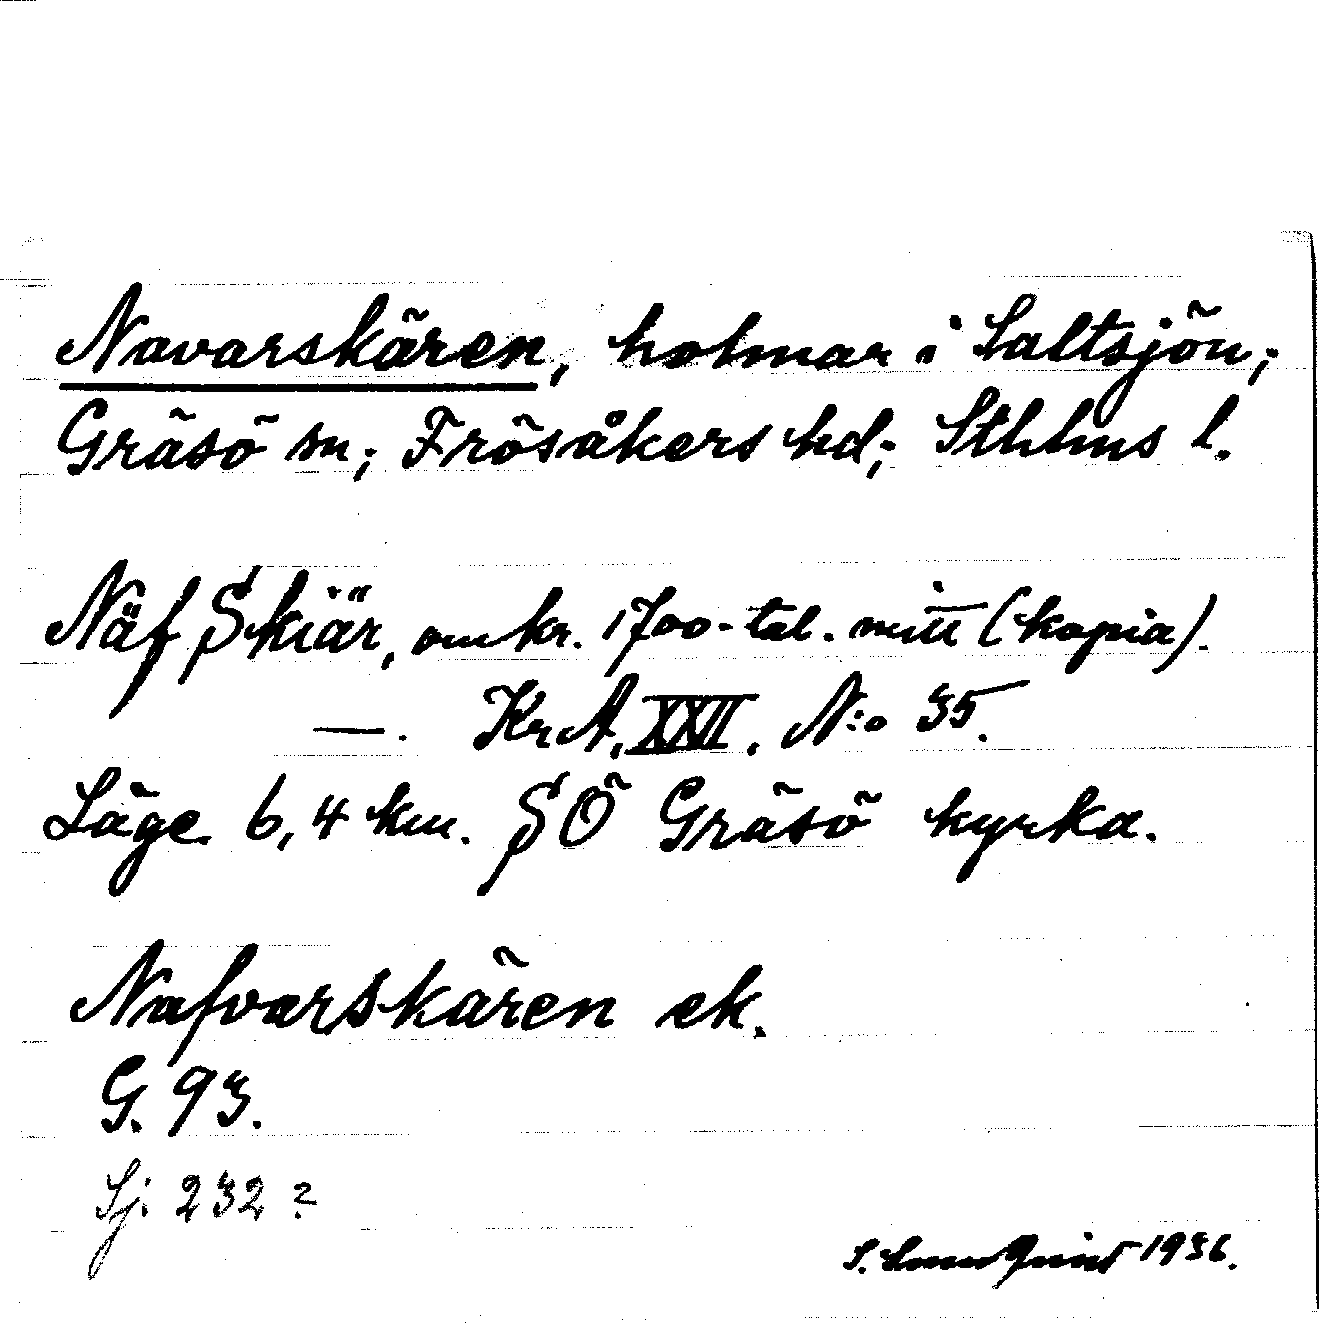 Navarskären, holmar i Saltsjön;
Gräsö sn; Frösåkers hd; Sthlms l.
Näf Skiär, omkr. 1700-tal. mitt (kopia).
—. KrA, XXII. N:o 35.
Läge 6,4 km. SÖ Gräsö kyrka.
Nafvarskären ek.
G. 93.
Sj. 232 ?
S. 1936.